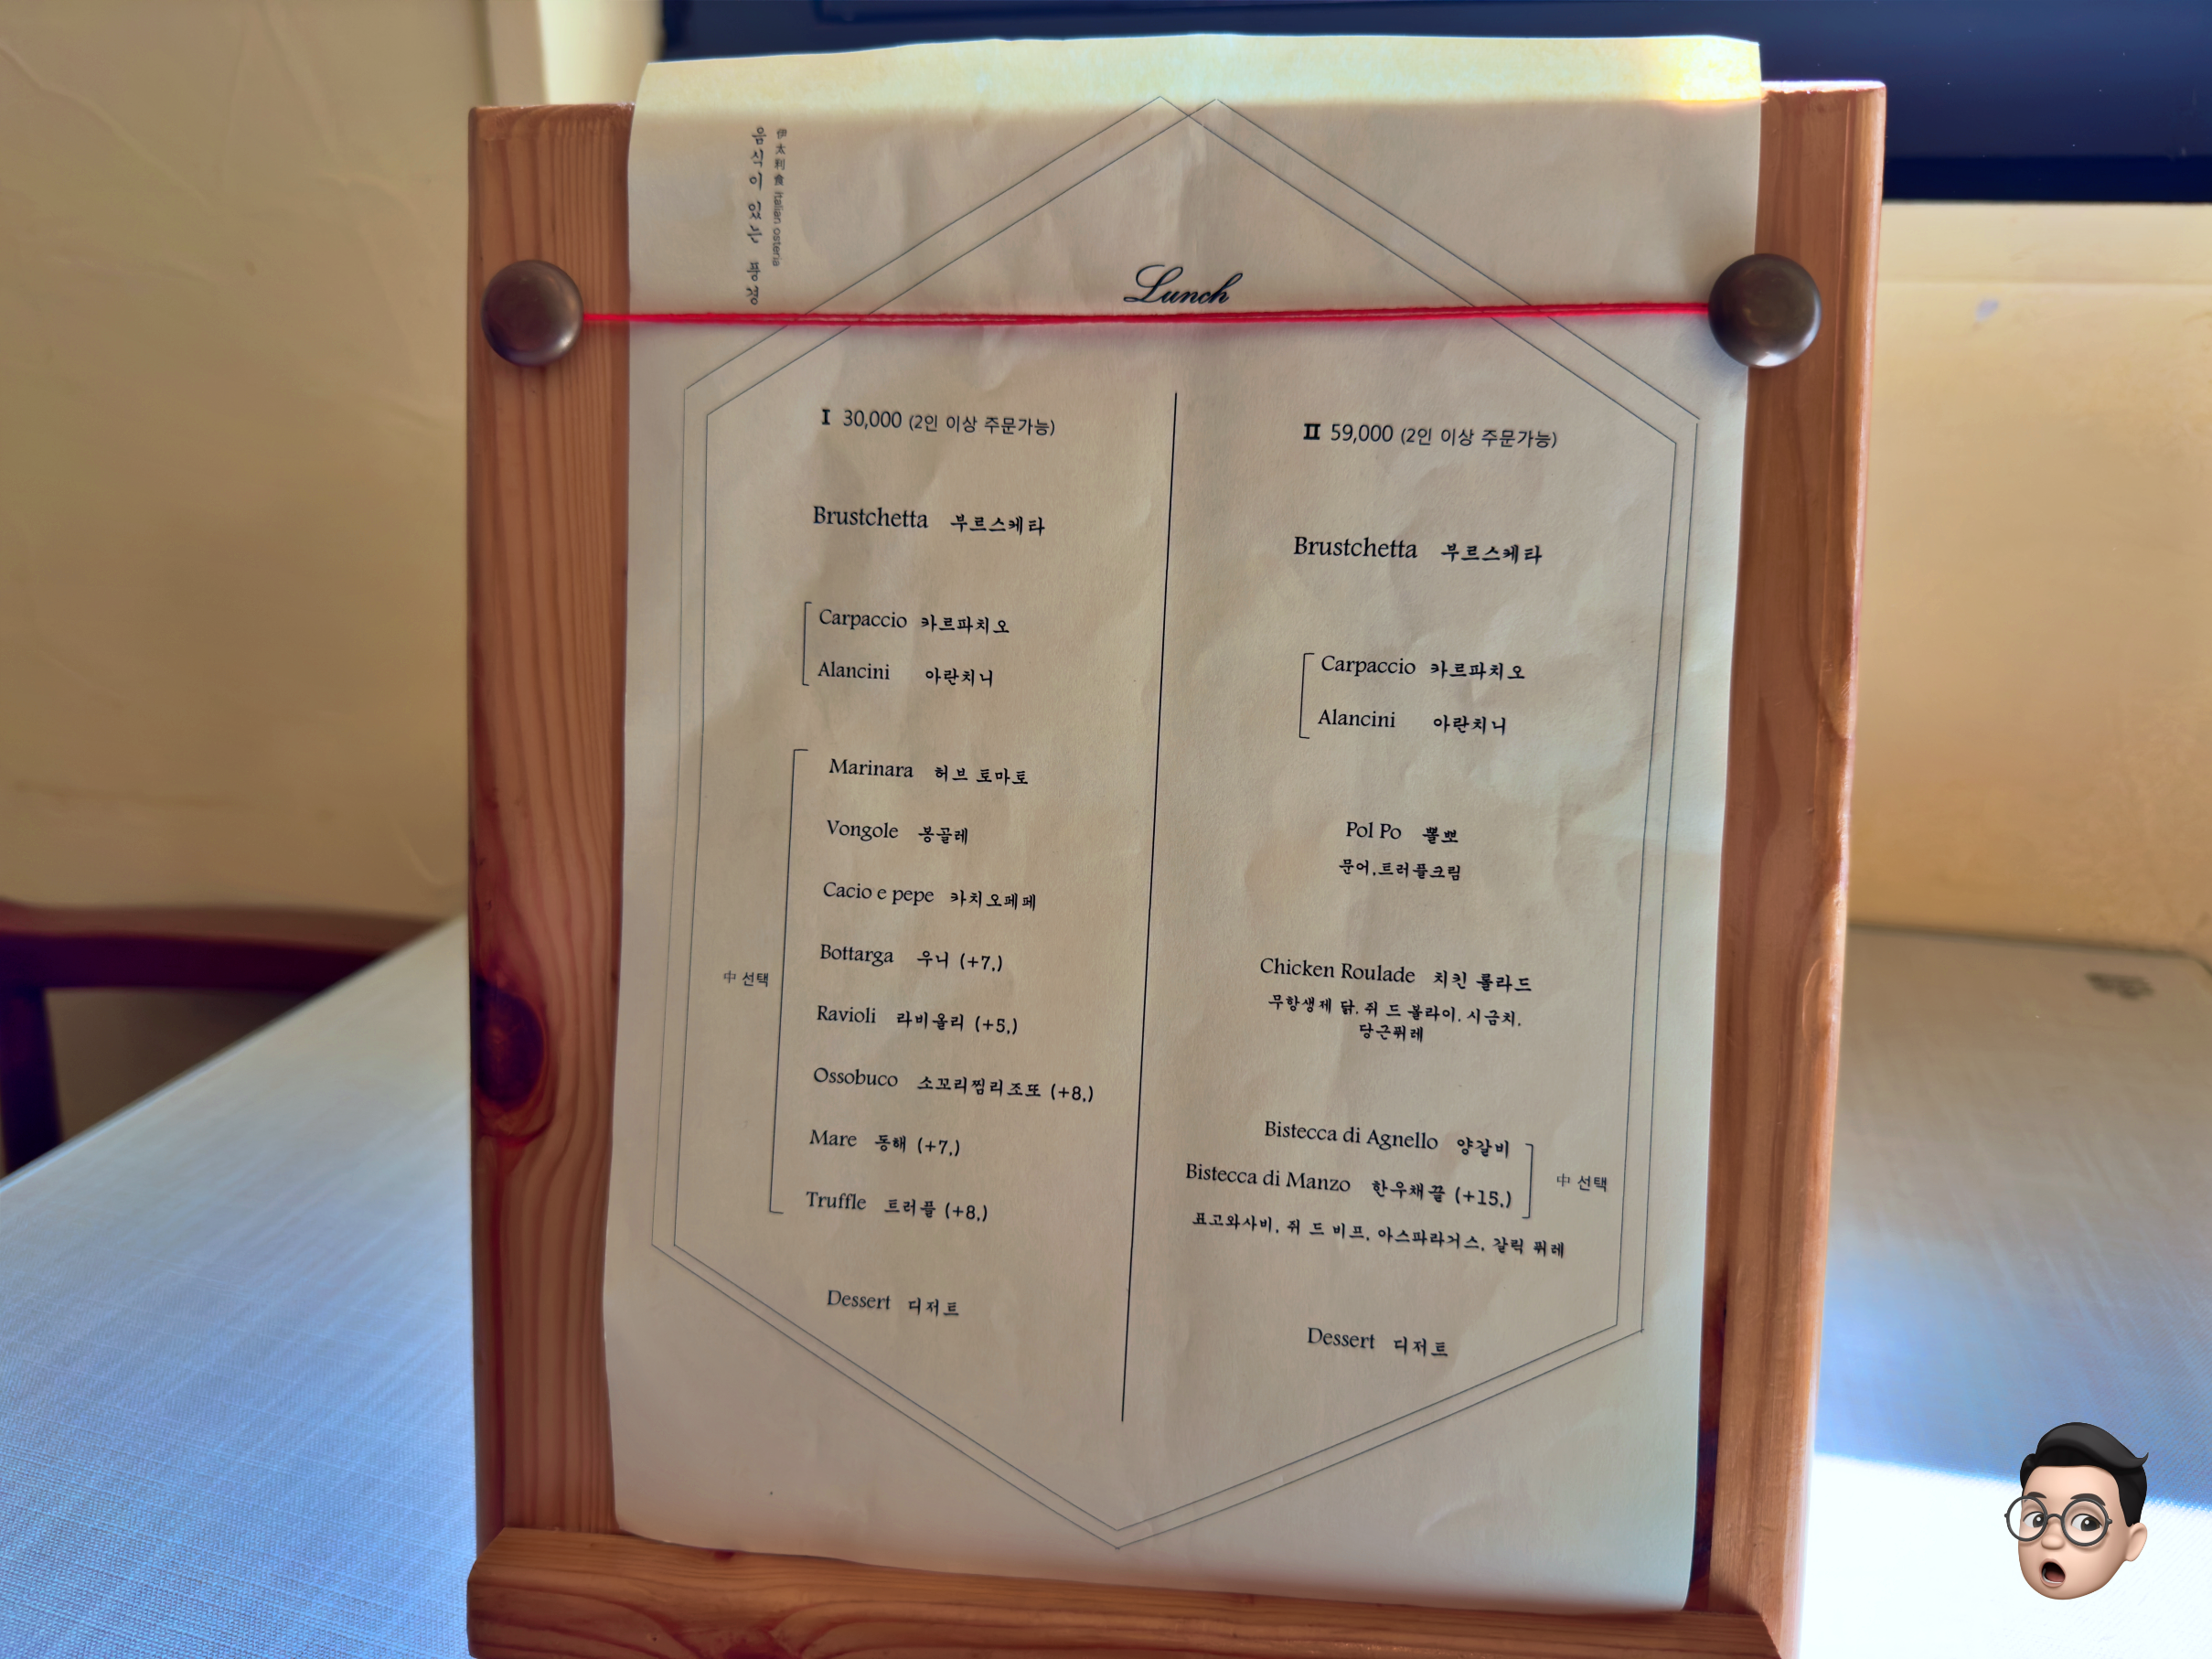 음식이 있는 풍경
伊太利食 italian osteria
Lunch
I 30,000 (2인 이상 주문가능)
Brustchetta 부르스케타
Carpaccio 카르파치오
Alancini 아란치니
Marinara 허브 토마토
Vongole 봉골레
Cacio e pepe 카치오페페
Bottarga 우니 (+7,)
中 선택
Ravioli 라비올리 (+5,)
Ossobuco 소꼬리찜리조또 (+8,)
Mare 동해 (+7,)
Truffle 트러플 (+8,)
Dessert 디저트
II 59,000 (2인 이상 주문가능)
Brustchetta 부르스케타
Carpaccio 카르파치오
Alancini 아란치니
Pol Po 뽈뽀
문어,트러플크림
Chicken Roulade 치킨 롤라드
무항생제 닭, 쥐 드 볼라이, 시금치,
당근퓌레
Bistecca di Agnello 양갈비
Bistecca di Manzo 한우채끝 (+15,)
中 선택
표고와사비, 쥐 드 비프, 아스파라거스, 갈릭 퓌레
Dessert 디저트